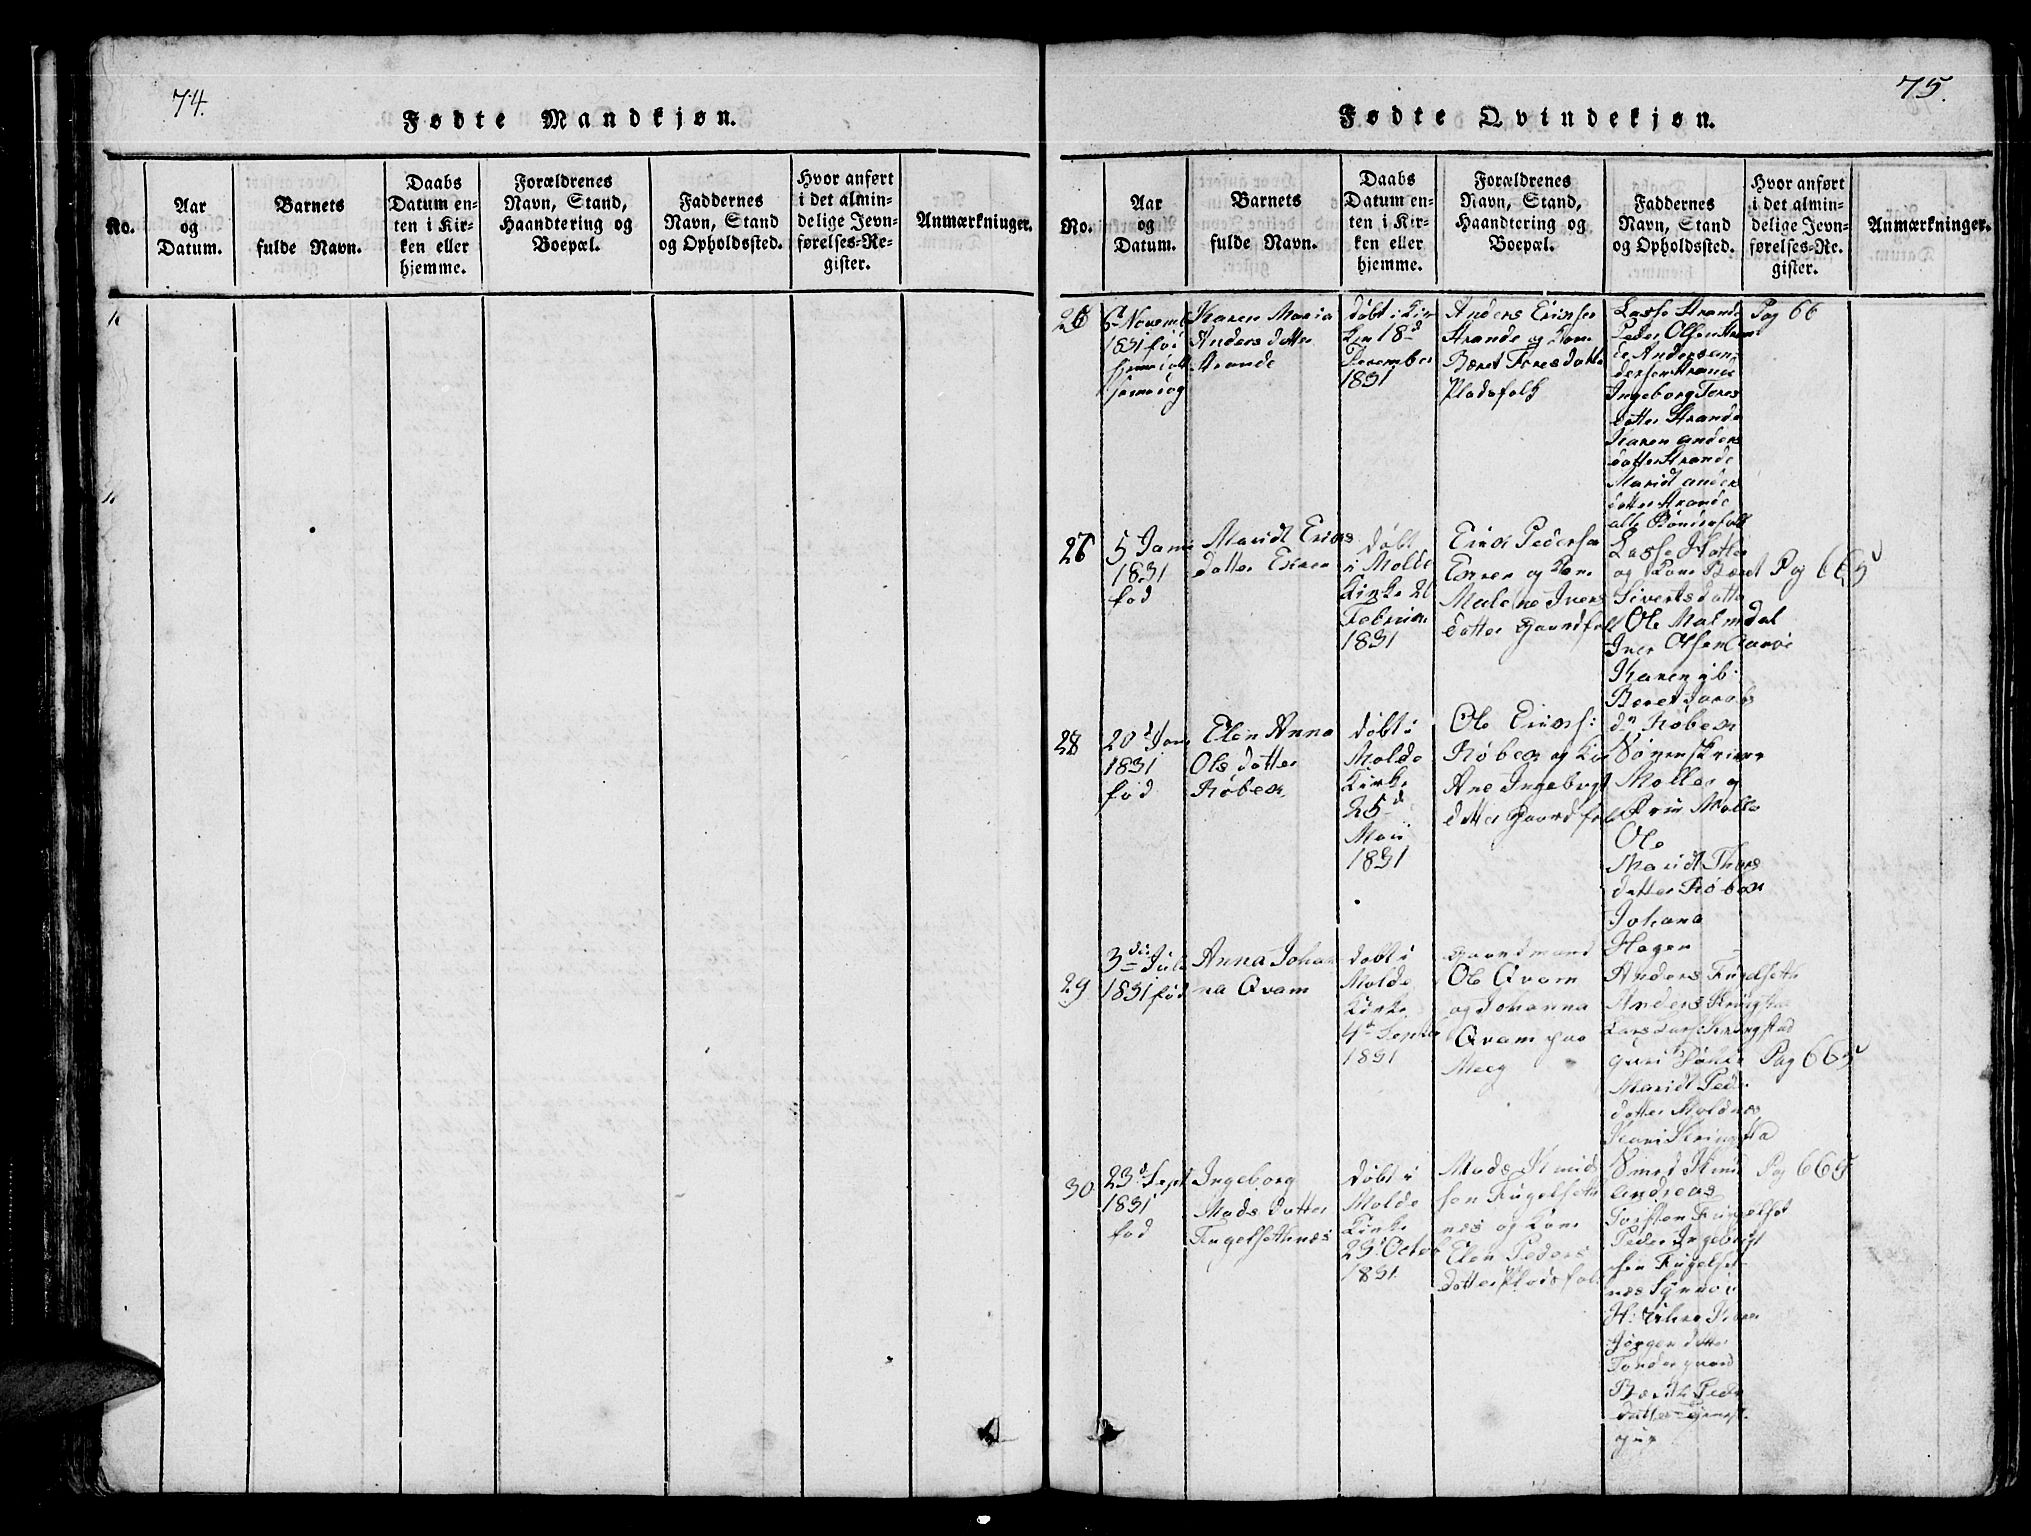 74.
Fødte Mandkjøn.
No.
Aar
og
Datum.
Barnets
fulde Navn.
Daabs
Datum en-
ten i Kir-
ken eller
hjemme.
Forældrenes
Navn, Stand,
Haandtering og
Boepæl.
Faddernes
Navn, Stand
og Opholdssted.
Hvor anført
i det almin-
delige Jevn-
førelses-Re-
gister.
Anmærkninger.
75.
Fødte Qvindekjøn.
No.
Aar
og
Datum.
Barnets
fulde Navn.
Daabs
Datum en-
ten i Kir-
ken eller
hjemme.
Forældrenes
Navn, Stand,
Haandtering og
Boepæl.
Faddernes
Navn, Stand
og Opholdssted.
Hvor anført
i det almin-
delige Jevn-
førelses-Re-
gister.
Anmærkninger.
26
6te Novemb
1831 fød
Karen Maria
Anders datter
Strande
døbt i Kir
ken 18d
December
1831
Anders Erichsen
Strande og Kone
Beret Toresdatter
Pladsfolk
Lasse Strande
Peder Olsen Stran
de Anders an
dersen Strande
Ingeborg Tores
datter Strande
Karen anders
datter Strande
Marit anders
datter Strande
alle Bønderfolk
Pag 66
27
5 Janu
1831
fød
Marit Erics
datter Exren
Døbt
i Molde
Kirke 21
Februar
1831
Erich Pedersen
Exren og Kone
Malene Ivers
datter Gaardfolk
Lasse
og Kone Beret
Sivertsdatter
Ole Malmdal
Iver Olsen Aarøe
Karen ib.
Beret Jacobs
dr Røbek
Pag 665
28
20d Jan
1831
fød
Elen Anna
Ols datter
Røbek
døbt i
Molde
Kirke
25d
Mai
1831
Ole Erichs:
Røbek og Kone
Ane Ingebrigt
datter Gaardfolk
Sørenskriver
Møller og
Frue Møller
Ole
Marit Thores
datter Røbek
Johana
Hagen
29
3die Juli
1831 fød
Anna Johan
na Qvam
døbt i
Molde
Kirke
4d Septe
1831
gaardmand
Ole Qvam
og Johanna
Qvam paa
Meeg
Anders Fugelseth
Anders Kringstad
Lars Lars: Kringstad
Marit Peder
datter Moldnæs
Kari Kringsta
Pag 665
30
23d Sept
1831
fød
Ingeborg
Mads datter
Fugelsethnæs
døbt i
Molde
Kirke
23d Octob
1831
Mads Knud
sen Fugelseth
næs og Kone
Elen Peders
datter Pladsfolk
Smed Knud
Andreas
Torsten Fugelset
Peder Ingebrigt
sen Fugelset
næs
Jørgen datter
Tøndergaard
Berith Peder
datter
Pag 665